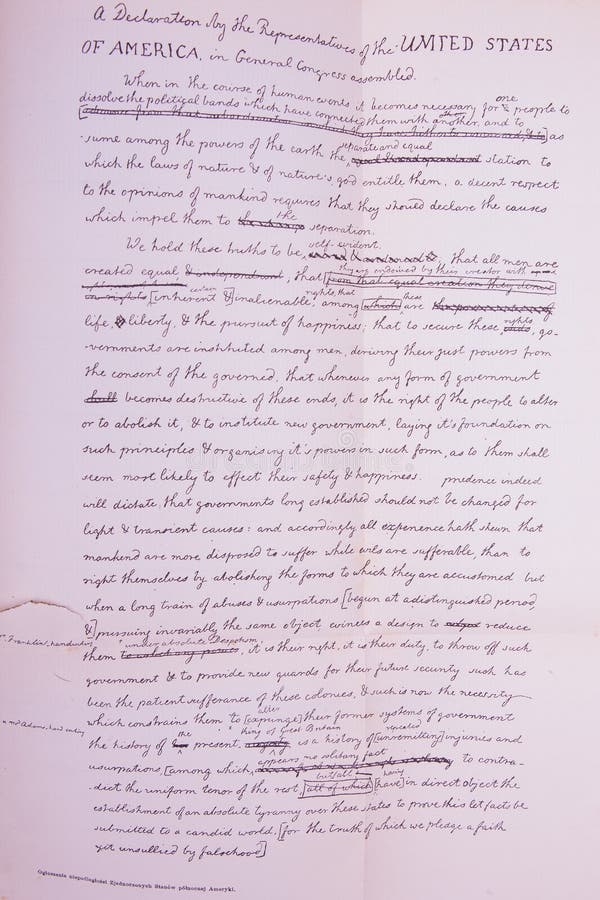 A Declaration by the Representatives of the UNITED STATES
OF AMERICA, in General Congress assembled.
When in the course of human events it becomes necessary for one people to
dissolve the political bands which have connected them with another, and to
as
sume among the powers of the earth the separate and equal station to
which the laws of nature & of nature's god entitle them, a decent respect
to the opinions of mankind requires that they should declare the causes
which impel them to the separation.
We hold these truths to be self-evident; that all men are
created equal & independant, that they are endowed by their creator with
from that equal creation they derive
certain rights, that these
[inherent &] inalienable, among which are
life, & liberty, & the pursuit of happiness; that to secure these rights, go-
-vernments are instituted among men, deriving their just powers from
the consent of the governed, that whenever any form of government
shall becomes destructive of these ends, it is the right of the people to alter
or to abolish it, & to institute new government, laying it's foundation on
such principles & organising it's powers in such form, as to them shall
seem most likely to effect their safety & happiness. prudence indeed
will dictate that governments long established should not be changed for
light & transient causes: and accordingly all experience hath shewn that
mankind are more disposed to suffer while evils are sufferable, than to
right themselves by abolishing the forms to which they are accustomed but
when a long train of abuses & usurpations [begun at a distinguished period,
&] pursuing invariably the same object, evinces a design to reduce
Franklin, handwriting
them under absolute Despotism, it is their right, it is their duty, to throw off such
government & to provide new guards for their future security such has
been the patient sufferance of these colonies, & such is now the necessity
which constrains them to alter [expunge] their former systems of government
Adams, handwriting
the history of the present King of Great Britain is a history of repeated [unremitting] injuries and
usurpations, [among which, appears no solitary fact to contra-
-dict the uniform tenor of the rest, but all [all of which] having [have] in direct object the
establishment of an absolute tyranny over these states to prove this let facts be
submitted to a candid world. [for the truth of which we pledge a faith
yet unsullied by falsehood]
Ogłoszenia niepodległości Zjednoczonych Stanów północnej Ameryki.
dreamstime